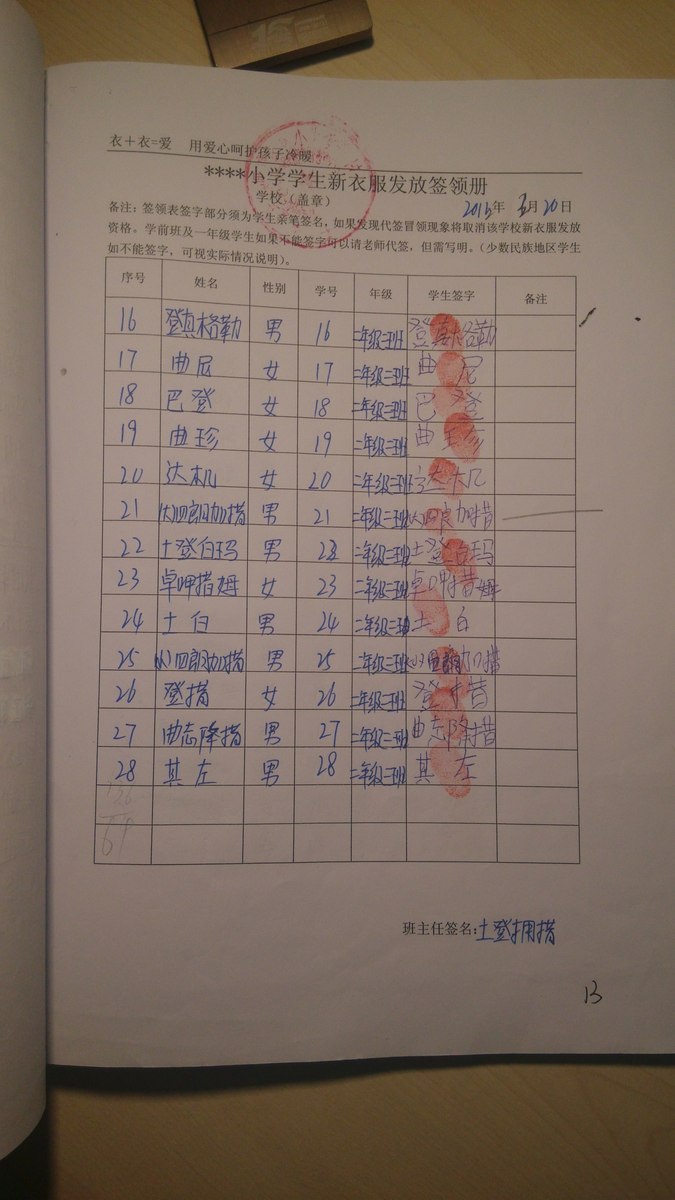 衣+衣=爱 用爱心呵护孩子冷暖
****小学学生新衣服发放签领册
学校（盖章） 年 月20日
备注：签领表签字部分须为学生亲笔签名，如果发现代签冒领现象将取消该学校新衣服发放
资格。学前班及一年级学生如果不能签字可以请老师代签，但需写明。（少数民族地区学生
如不能签字，可视实际情况说明）。
序号 姓名 性别 学号 年级 学生签字 备注
16 登真格勒 男 16 二年级二班 登真格勒
17 曲尼 女 17 二年级二班 曲尼
18 巴登 女 18 二年级二班 巴登
19 曲珍 女 19 二年级二班 曲珍
20 达机 女 20 二年级二班 达机
21 大四郎加措 男 21 二年级二班 大四良加措
22 土登白玛 男 22 二年级二班 土登白玛
23 卓呷措姆 女 23 二年级二班 卓呷措姆
24 土白 男 24 二年级二班 土白
25 小四郎加措 男 25 二年级二班 小四郎加措
26 登措 女 26 二年级二班 登措
27 曲志降措 男 27 二年级二班 曲志降措
28 其左 男 28 二年级二班 其左
班主任签名：土登拥措
13